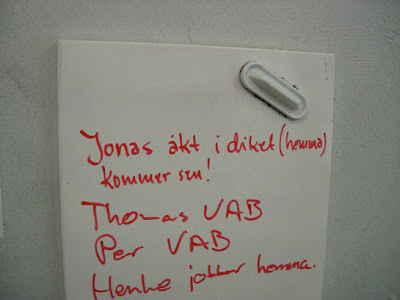 Jonas åkt i diket (hemma)
kommer sen!
Thomas VAB
Per VAB
Henke jobbar hemma.